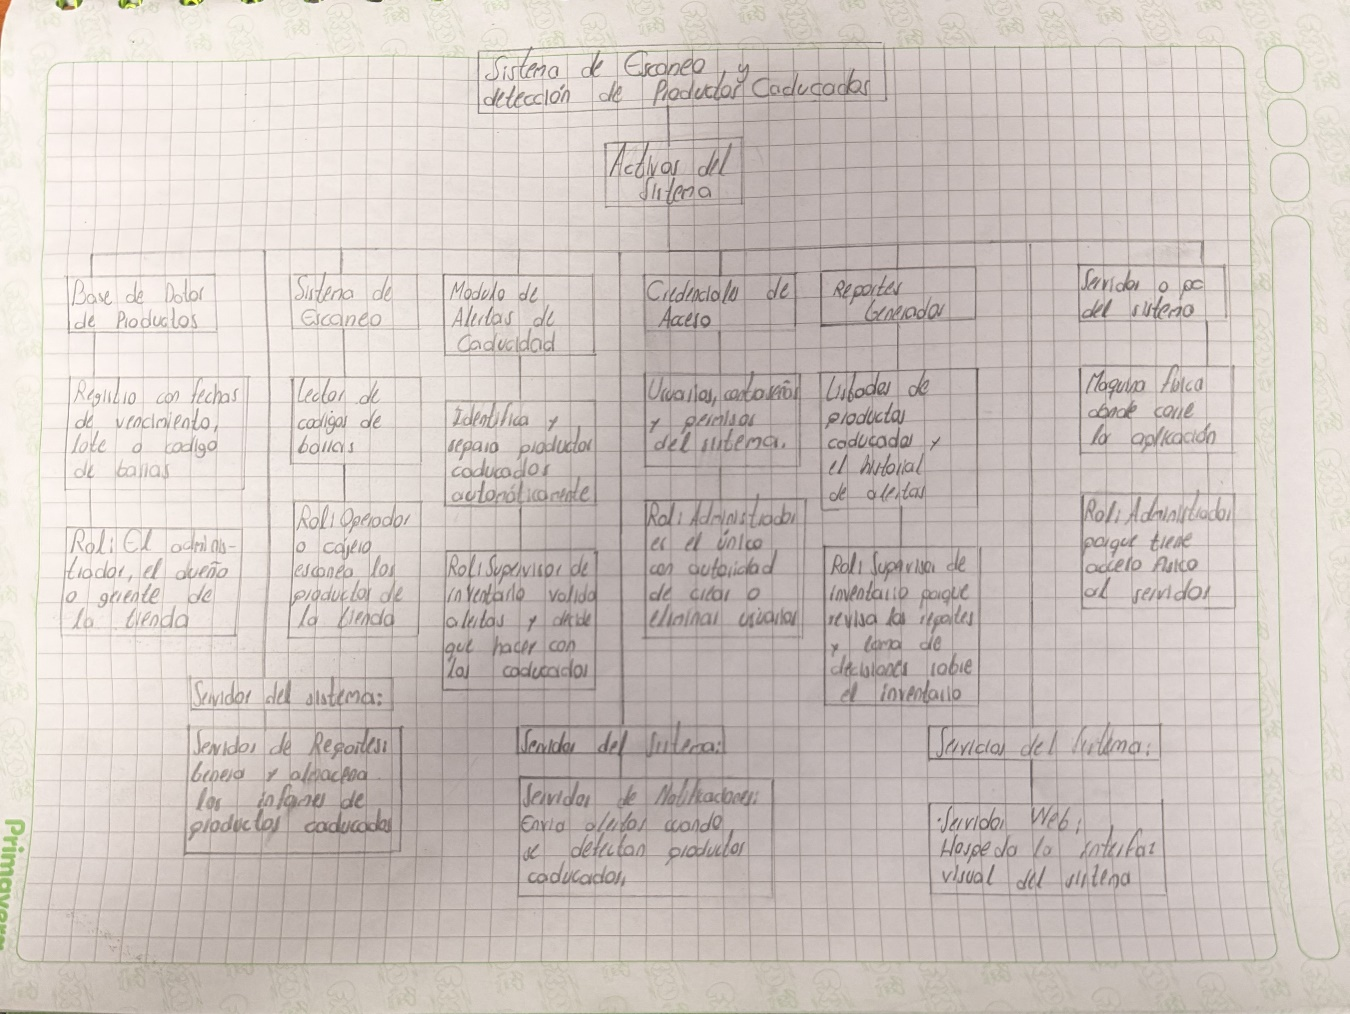 Sistema de Escaneo y
detección de Productos Caducados
Activos del
Sistema
Base de Datos
de Productos
Registro con fechas
de vencimiento,
lote o codigo
de barras
Rol: El adminis-
trador, el dueño
o gerente de
la tienda
Sistema de
Escaneo
Lector de
codigos de
barras
Rol: Operador
o cajero
escanea los
productos de
la tienda
Modulo de
Alertas de
Caducidad
Identifica y
separa productos
caducados
automáticamente
Rol: Supervisor de
inventario valida
alertas y decide
que hacer con
los caducados
Credenciales de
Acceso
Usuarios, contraseñas
y permisos
del sistema.
Rol: Administrador
es el único
con autoridad
de crear o
eliminar usuarios
Reportes
Generados
Listados de
productos
caducados y
el historial
de alertas
Rol: Supervisor de
inventario porque
revisa los reportes
y toma de
decisiones sobre
el inventario
Servidor o pc
del sistema
Maquina fisica
donde corre
la aplicación
Rol: Administrador
porque tiene
acceso fisico
al servidor
Servidor del sistema:
Servidor de Reportes:
Genera y almacena
los informes de
productos caducados
Servidor del Sistema:
Servidor de Notificaciones:
Envia alertas cuando
se detectan productos
caducados,
Servicios del Sistema:
·Servidor Web:
Hospeda la interfaz
visual del sistema
Primavera